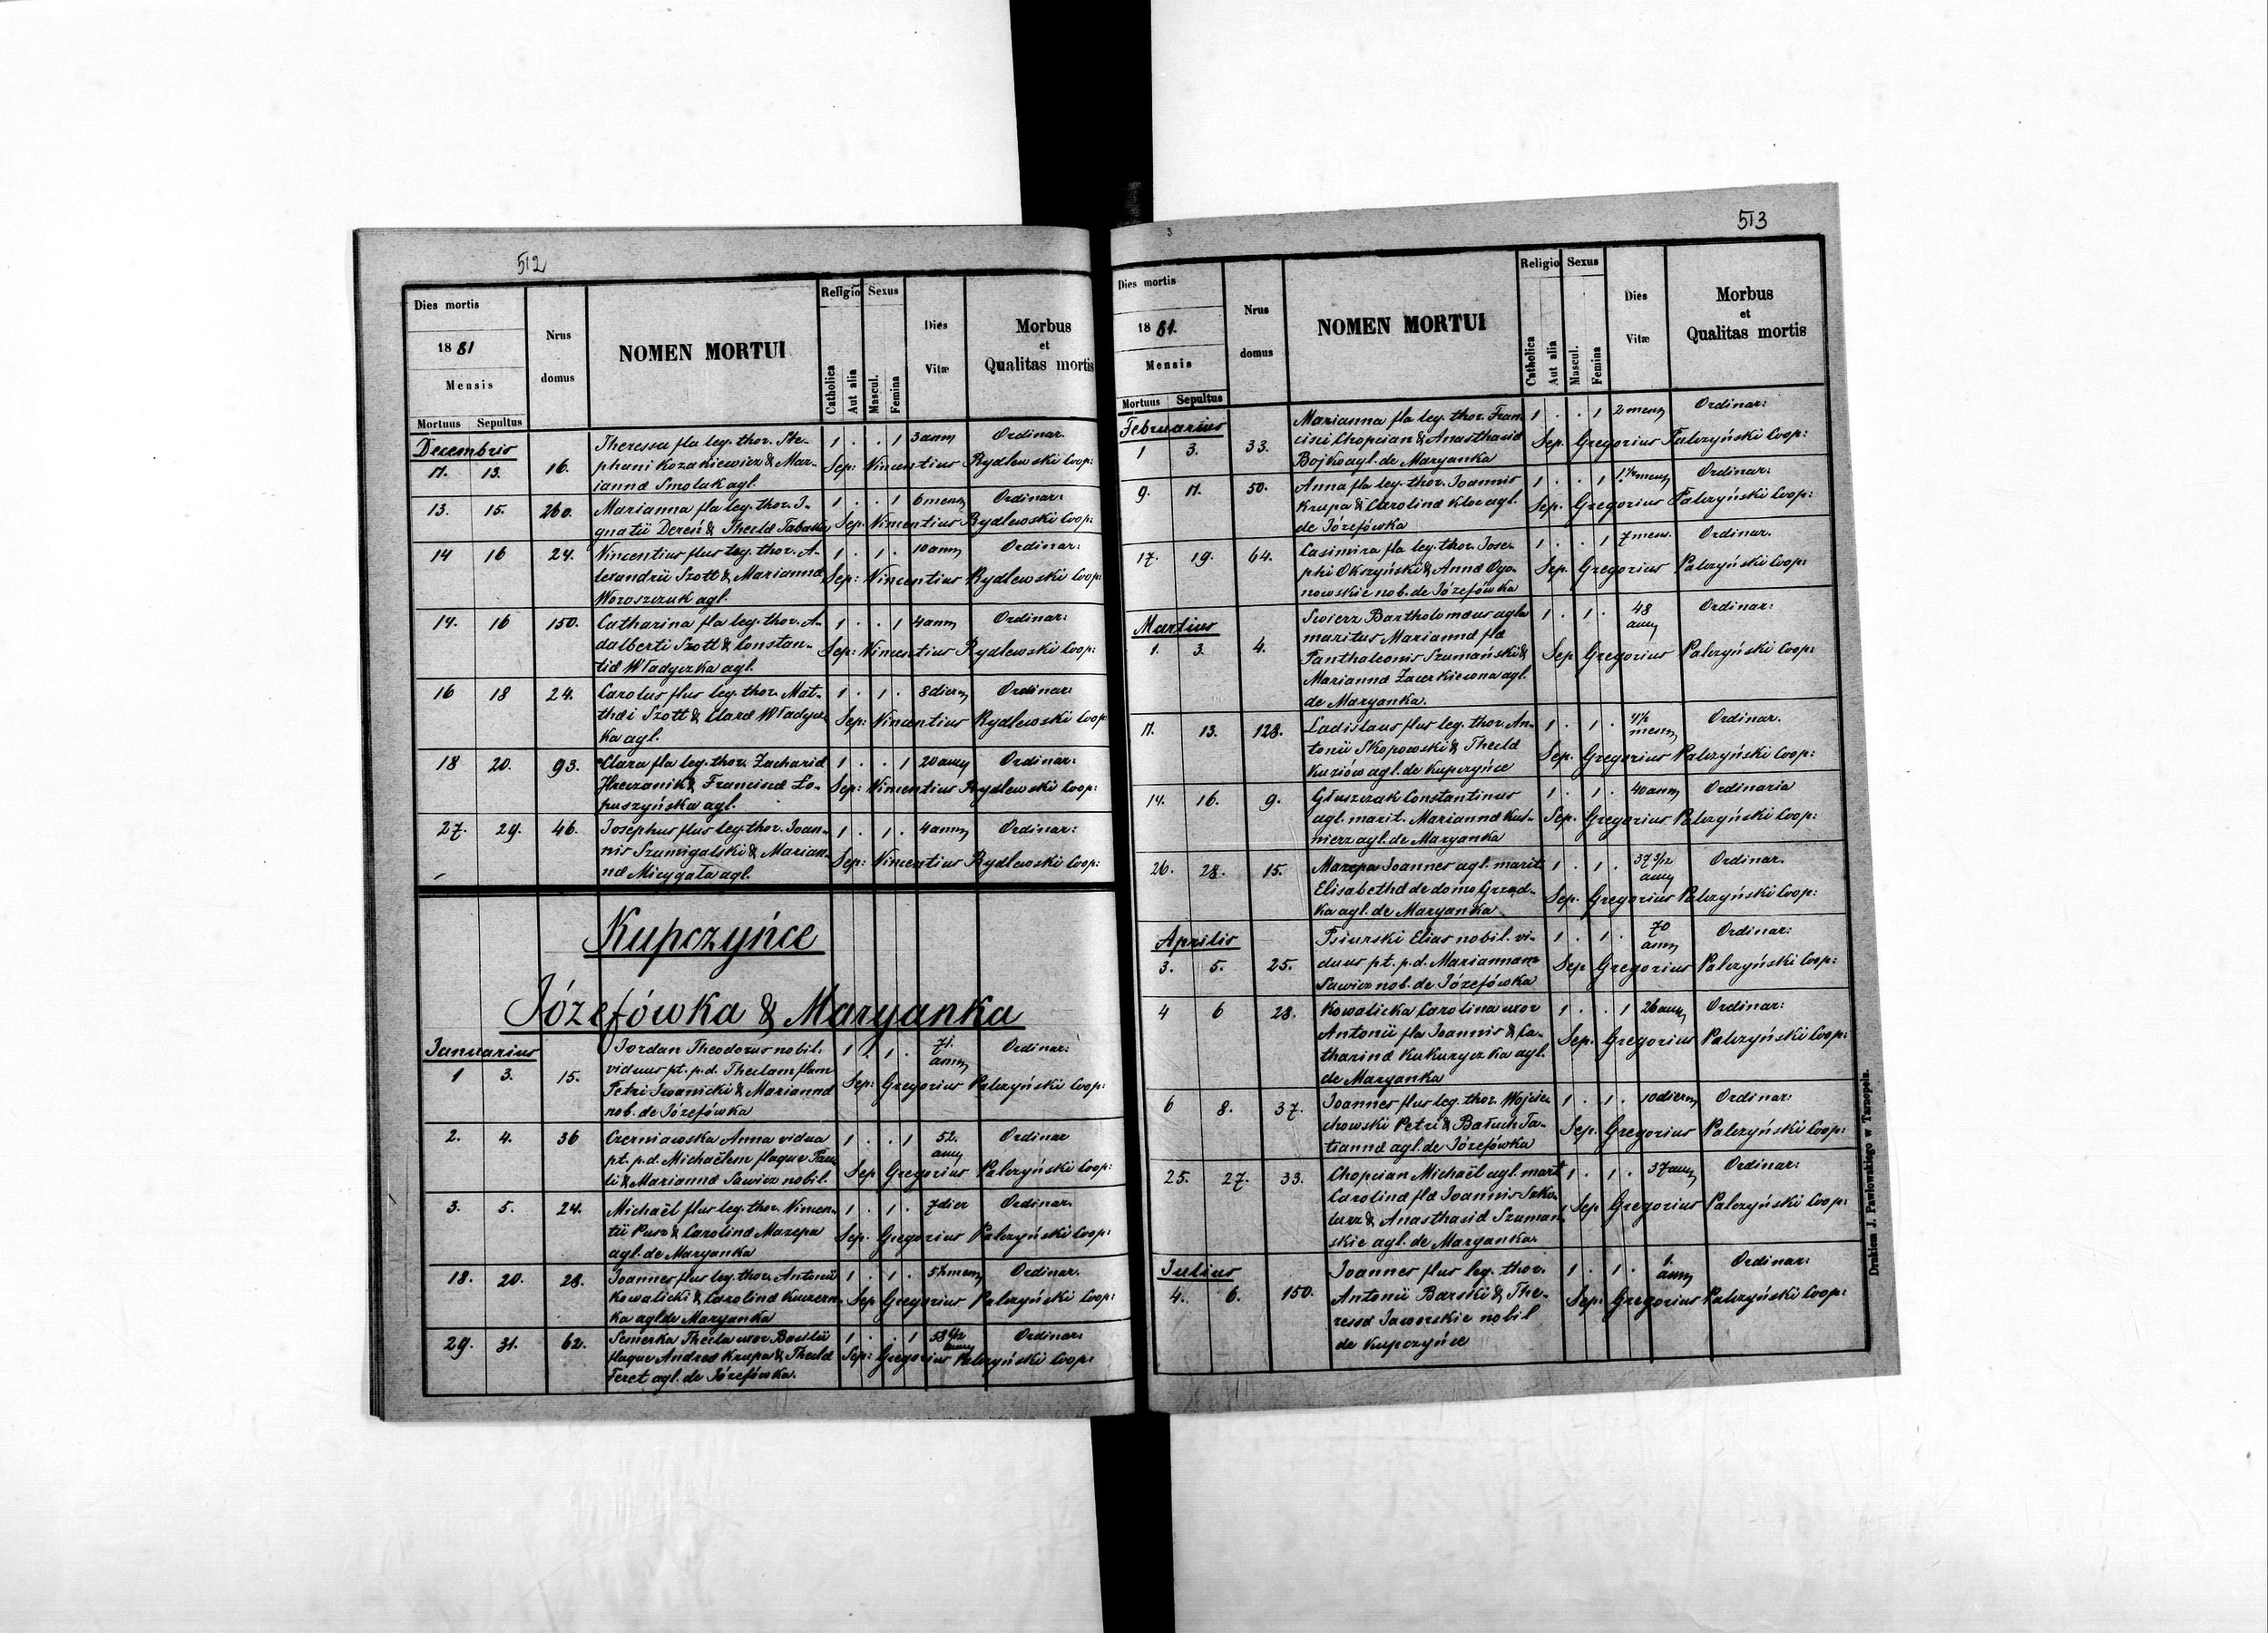 512
Dies mortis
1881
Mensis
Mortuus Sepultus
Nrus
domus
NOMEN MORTUI
Religio Sexus
Catholica
Aut alia
Mascul.
Femina
Dies
Vitæ
Morbus
et
Qualitas mortis
Decembris
11. 13. 16. Theressa fla leg. thor. Ste- 1 . . 1 3 ann Ordinar.
phani Kozakiewicz & Mar- Sep: Vincentius Rydlewski Coop:
iannæ Smolak agl.
13. 15. 260. Marianna fla leg. thor. I- 1 . . 1 6 mens Ordinar:
gnatii Dereń & Theclæ Sep: Vincentius Rydlewski Coop:
14 16 24. Vincentius flus leg. thor. A- 1 . 1 . 10 ann Ordinar:
lexandrii Szott & Mariannæ Sep: Vincentius Rydlewski Coop:
Woroszczuk agl.
14. 16 150. Catharina fla leg. thor. A- 1 . . 1 4 ann Ordinar:
dalberti Szott & Constan- Sep: Vincentius Rydlewski Coop:
tiæ Władyczka agl.
16 18 24. Carolus flus leg. thor. Mat- 1 . 1 . 8 dierum Ordinar:
thæi Szott & Claræ Władycz Sep: Vincentius Rydlewski Coop
ka agl.
18 20. 93. Clara fla leg. thor. Zachariæ 1 . . 1 20 ann Ordinar:
& Franciscæ Ło- Sep: Vincentius Rydlewski Coop:
puszyńska agl.
27. 29. 46. Josephus flus leg. thor. Joan- 1 . 1 . 4 ann Ordinar:
nis Szumigalski & Marian- Sep: Vincentius Rydlewski Coop:
næ Micygała agl.
Kupczyńce
Józefówka & Maryanka
Januarius
1 3. 15. Jordan Theodorus nobil. 1 . 1 . 71. ann Ordinar:
viduus pt. p.d. Theclam flam
Petri Iwanicki & Mariannæ Sep: Gregorius Palczyński Coop:
nob. de Józefówka
2. 4. 36 Czerniawska Anna vidua 1 . . 1 52. ann Ordinar
pt. p.d. Michaëlem flaque Pau Sep Gregorius Palczyński Coop:
li & Mariannæ Sawicz nobil.
3. 5. 24. Michaël flus leg. thor. Vincen- 1 . 1 . 7 dier Ordinar.
tii Pusz & Carolinæ Mazepa Sep. Gregorius Palczyński Coop:
agl. de Maryanka
18. 20. 28. Joannes flus leg. thor. Antonii 1 . 1 . 5½ mens Ordinar.
Kowalicki & Carolinæ Sep Gregorius Palczyński Coop:
ka agl de Maryanka
29. 31. 62. Semerka Thecla uxor Basilii 1 . . 1 58 6/12 ann Ordinar:
flaque Andreæ Krupa & Theclæ Sep: Gregorius Palczyński Coop:
Feret agl. de Józefówka.
3
513
Dies mortis
1881.
Mensis
Mortuus Sepultus
Nrus
domus
NOMEN MORTUI
Religio Sexus
Catholica
Aut alia
Mascul.
Femina
Dies
Vitæ
Morbus
et
Qualitas mortis
Februarius
1 3. 33. Marianna fla leg. thor. Fran 1 . . 1 2 mens Ordinar:
cisci Chopcian & Anasthasiæ Sep. Gregorius Palczyński Coop:
Bojko agl. de Maryanka
9. 11. 50. Anna fla leg. thor. Joannis 1 . . 1 1½ mens Ordinar:
Krupa & Carolinæ Kloc agl. Sep. Gregorius Palczyński Coop:
de Józefówka
17. 19. 64. Casimira fla leg. thor. Jose- 1 . . 1 7 mens. Ordinar.
phi Okszyński & Annæ Ogo- Sep. Gregorius Palczyński Coop:
nowskie nob. de Józefówka
Martius
1. 3. 4. Swierz Bartholomæus agla 1 . 1 . 48 ann Ordinar:
maritus Mariannæ flæ
Panthaleonis Szumański & Sep Gregorius Palczyński Coop:
Mariannæ agl.
de Maryanka.
11. 13. 128. Ladislaus flus leg. thor. An- 1 . 1 . 4½ mens Ordinar.
tonii Skopowski & Theclæ Sep. Gregorius Palczyński Coop:
Kuziów agl. de Kupczyńce
14. 16. 9. Głuszczak Constantinus 1 . 1 . 40 ann Ordinaria
agl. marit. Mariannæ Kuś- Sep. Gregorius Palczyński Coop:
nierz agl. de Maryanka
26. 28. 15. Mazepa Joannes agl. marit 1 . 1 . 37 3/12 ann Ordinar.
Elisabethæ de domo Grzęd- Sep. Gregorius Palczyński Coop:
ka agl. de Maryanka
Aprilis
3. 5. 25. Psiurski Elias nobil. vi- 1 . 1 . 70 ann Ordinar:
duus pt. p.d. Mariannam Sep Gregorius Palczyński Coop:
Sawicz nob. de Józefówka
4 6 28. Kowalicka Carolina uxor 1 . . 1 26 ann Ordinar:
Antonii fla Joannis & Ca- Sep. Gregorius Palczyński Coop:
tharinæ Kukuryczka agl.
de Maryanka
6 8. 37. Joannes flus leg. thor. Wojcie- 1 . 1 . 10 dierum Ordinar:
chowski Petri & Bałuch Ta- Sep. Gregorius Palczyński Coop:
tiannæ agl. de Józefówka
25. 27. 33. Chopcian Michaël agl. marit 1 . 1 . 37 ann Ordinar:
Carolinæ flæ Joannis Szko- Sep Gregorius Palczyński Coop:
larz & Anasthasiæ Szuman
skie agl. de Maryanka.
Julius
4. 6. 150. Joannes flus leg. thor. 1 . 1 . 1. ann Ordinar:
Antonii Barski & The- Sep. Gregorius Palczyński Coop:
ressæ Jaworskie nobil
de Kupczyńce
Drukiem J. Pawłowskiego w Tarnopolu.